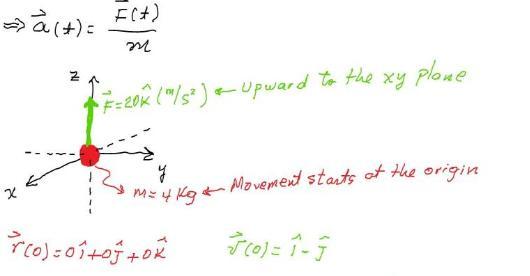 ⇒ a⃗(t) = F⃗(t)/m
z
F⃗=20k̂ (m/s²) ← Upward to the xy plane
y
x
m=4 kg ← Movement starts at the origin
r⃗(0)=0î+0ĵ+0k̂
v⃗(0)=î-ĵ